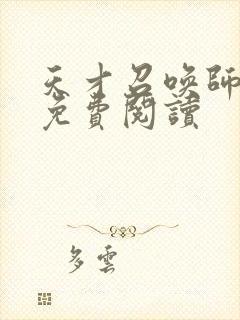 天才召喚師
免費閱讀
多雲